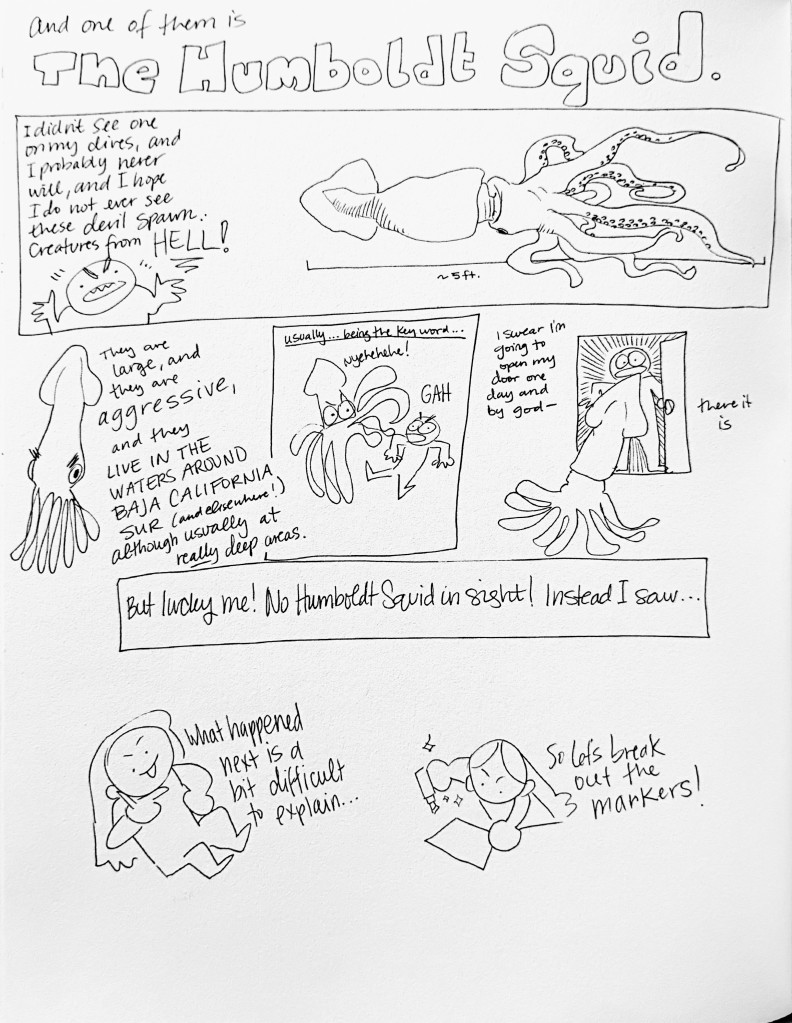 And one of them is
The Humboldt Squid.
I didn't see one
on my dives, and
I probably never
will, and I hope
I do not ever see
these devil spawn..
Creatures from HELL!
~5ft.
They are
large, and
they are
aggressive,
and they
LIVE IN THE
WATERS AROUND
BAJA CALIFORNIA
SUR (and elsewhere!)
although usually at
really deep areas.
usually... being the key word...
Nyehehehe!
GAH
I swear I'm
going to
open my
door one
day and
by god—
there it
is
But lucky me! No Humboldt Squid in sight! Instead I saw...
What happened
next is a
bit difficult
to explain...
So let's break
out the
markers!